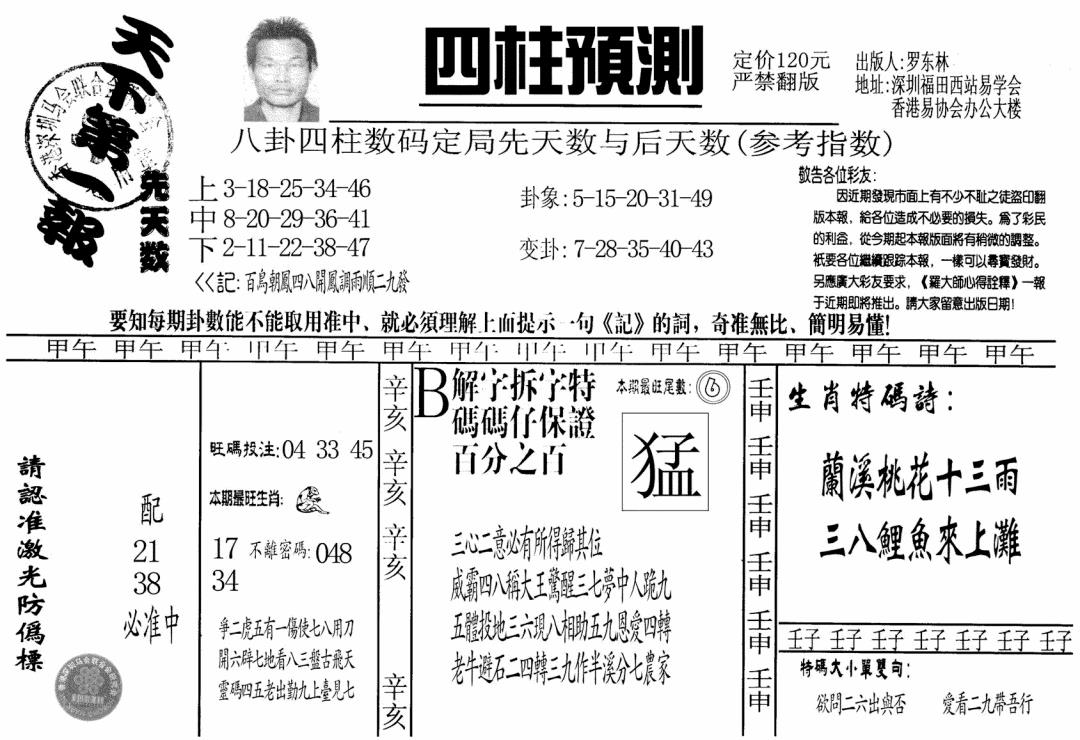 天下第一報
四柱預測
定价120元
严禁翻版
出版人:罗东林
地址:深圳福田西站易学会
香港易协会办公大楼
八卦四柱数码定局先天数与后天数(参考指数)
先天数
上3-18-25-34-46
中8-20-29-36-41
下2-11-22-38-47
卦象:5-15-20-31-49
变卦:7-28-35-40-43
<<記:百鳥朝鳳四八開鳳調雨順二九發
敬告各位彩友:
因近期發現市面上有不少不恥之徒盜印翻
版本報,給各位造成不必要的損失。爲了彩民
的利益,從今期起本報版面將有稍微的調整。
衹要各位繼續跟踪本報,一樣可以尋寶發財。
另應廣大彩友要求,《羅大師心得詮釋》一報
于近期即將推出。請大家留意出版日期!
要知每期卦數能不能取用准中、就必須理解上面提示一句《記》的詞,奇准無比、簡明易懂!
甲午 甲午 甲午 甲午 甲午 甲午 甲午 甲午 甲午 甲午 甲午 甲午 甲午 甲午 甲午
請認准激光防僞標
配
21
38
必准中
旺碼投注:04 33 45
本期最旺生肖:
17 不離密碼:048
34
爭二虎五有一傷使七八用刀
開六辟七地看八三盤古飛天
靈碼四五老出勤九上臺見七
辛亥 辛亥 辛亥 辛亥
B解字拆字特
碼碼仔保證
百分之百
本期最旺尾數:6
猛
三心二意必有所得歸其位
威霸四八稱大王驚醒三七夢中人跪九
五體投地三六現八相助五九恩愛四轉
老牛避石二四轉三九作半溪分七農家
壬申 壬申 壬申 壬申 壬申 壬申
生肖特碼詩:
蘭溪桃花十三雨
三八鯉魚來上灘
壬子 壬子 壬子 壬子 壬子 壬子 壬子
特碼大小單雙句:
欲問二六出與否 愛看二九帶吾行